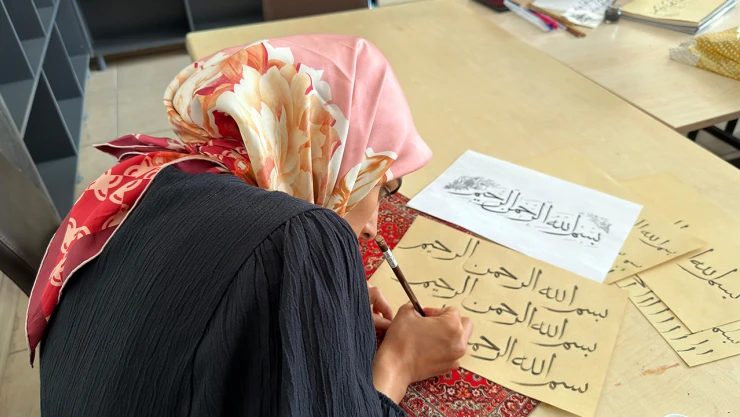 بسم الله الرحمن الرحيم
بسم الله الرحمن الرحيم
بسم الله الرحمن الرحيم
بسم الله الرحمن
بسم الله
بسم الله